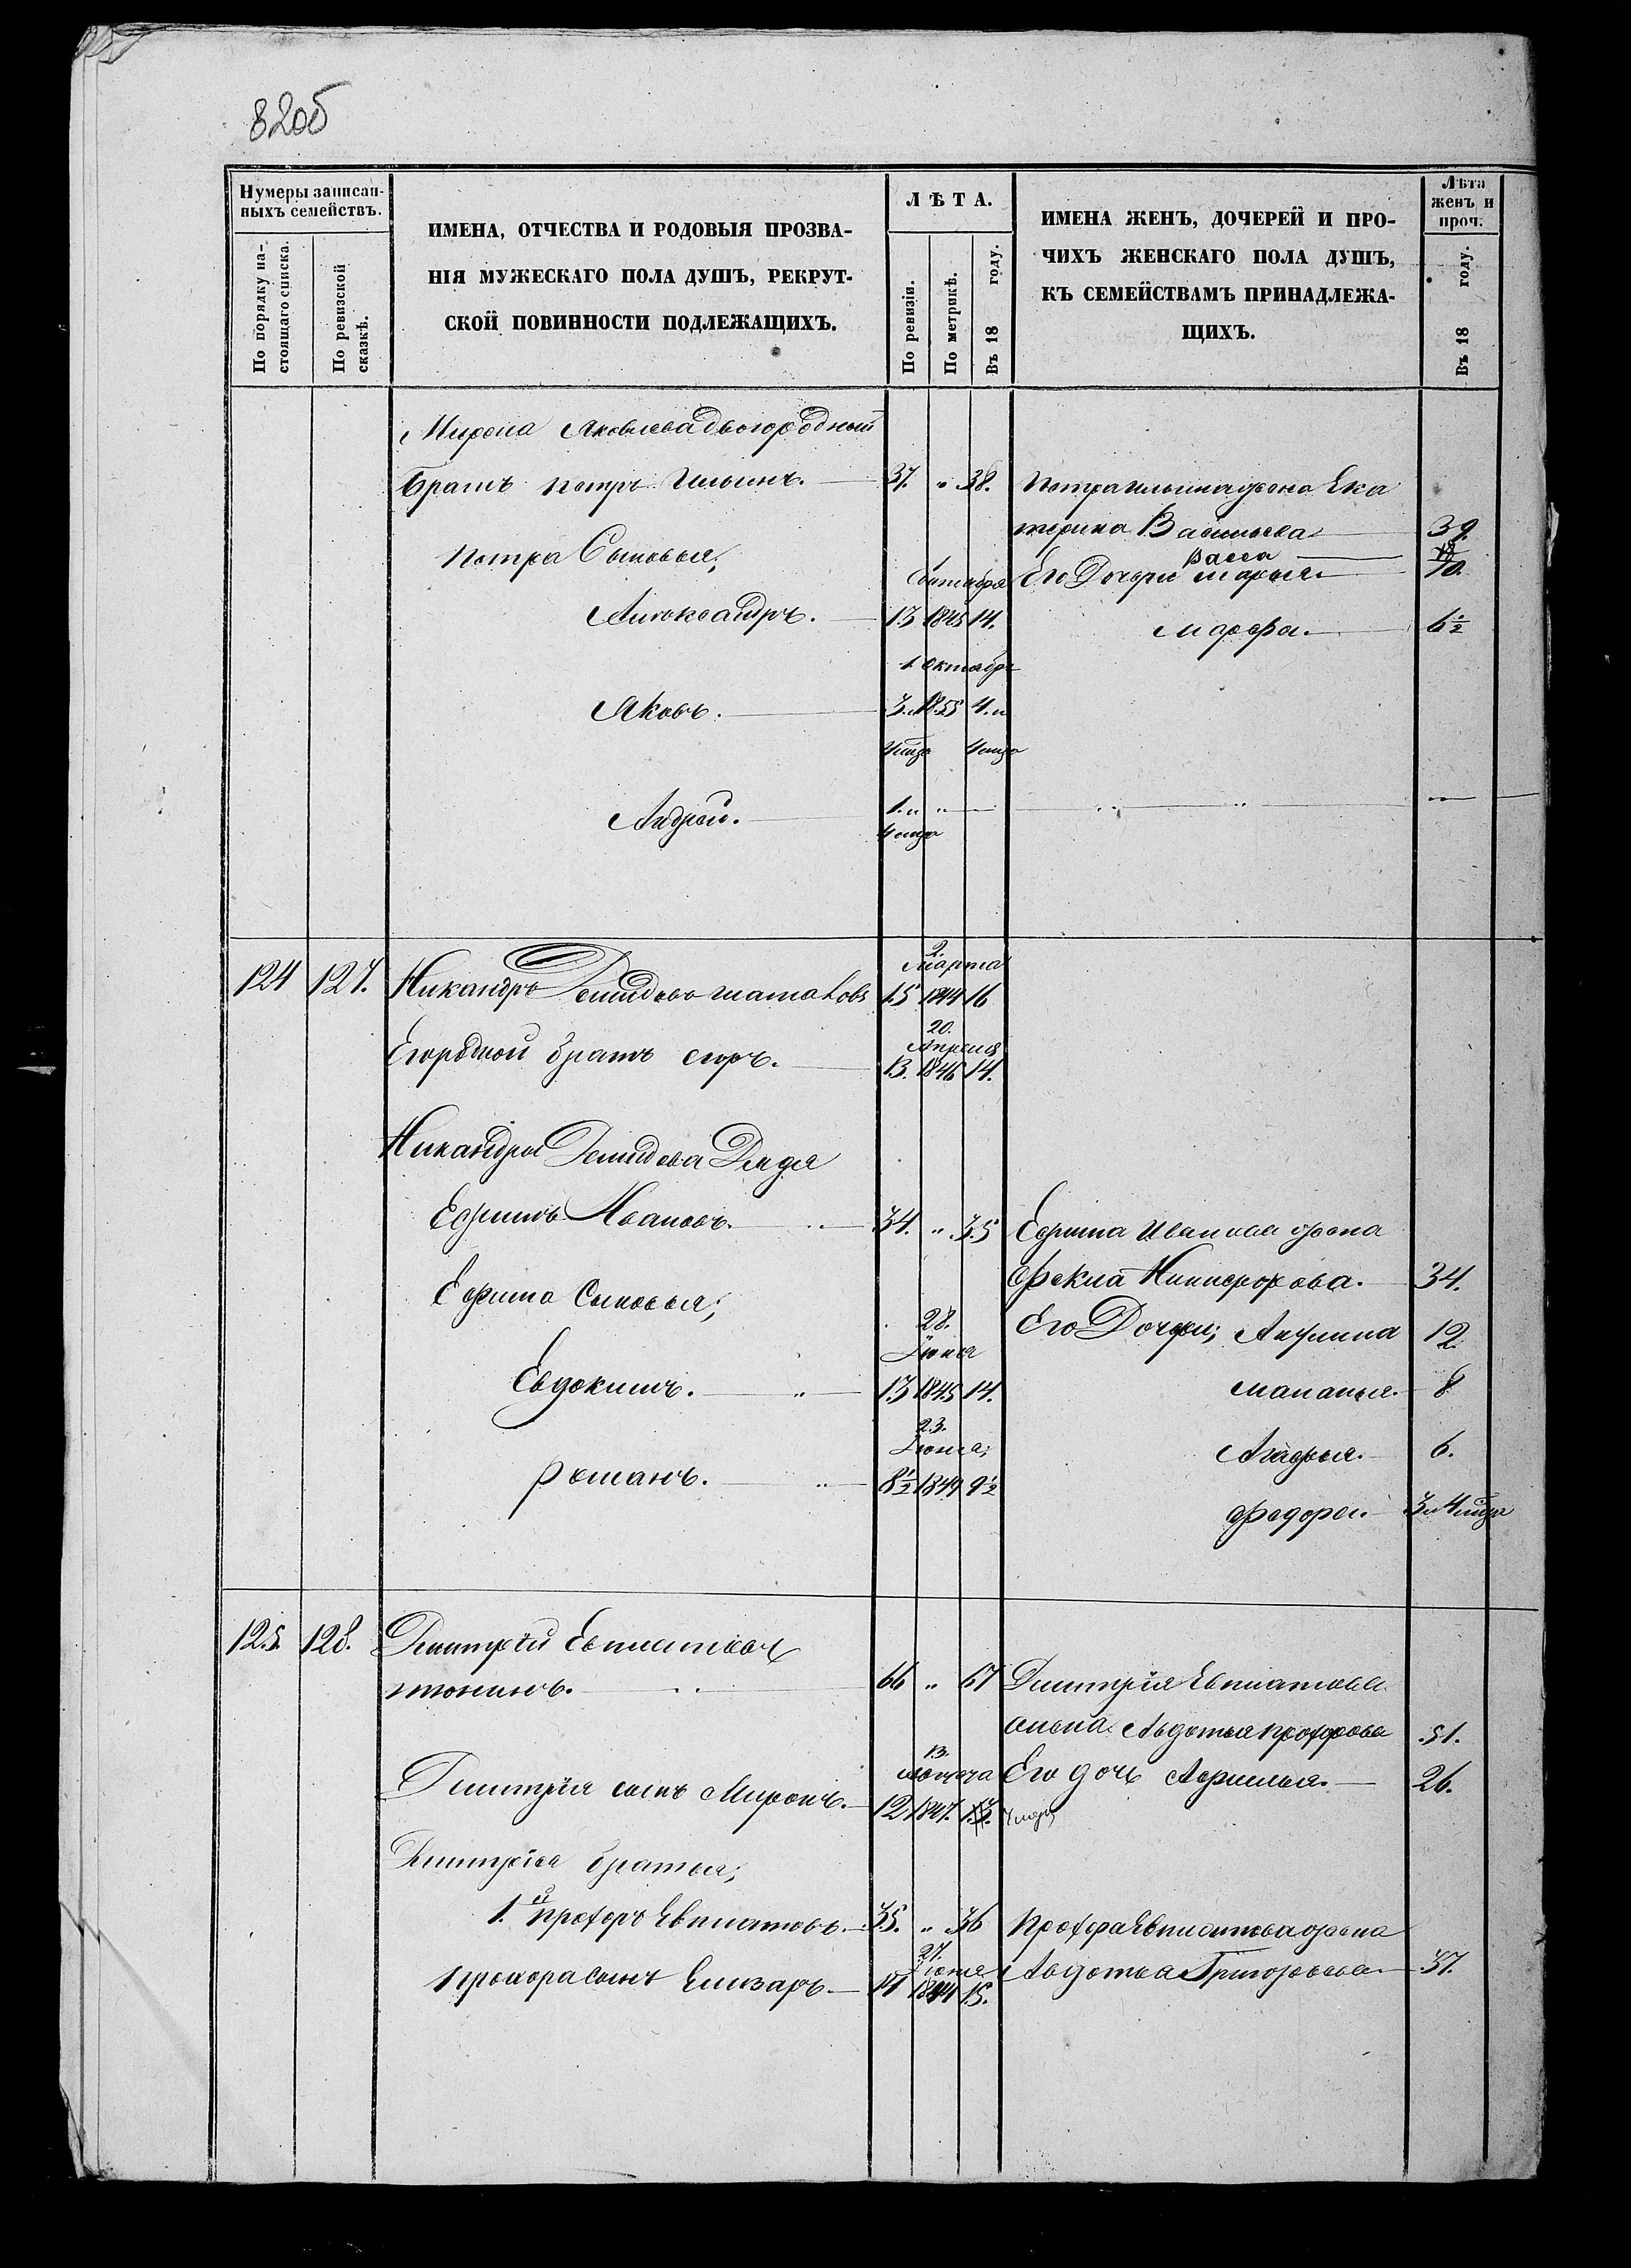 82об
Нумеры записан-
ныхъ семействъ.
По порядку на-
стоящаго списка.
По ревизской
сказкѣ.
ИМЕНА, ОТЧЕСТВА И РОДОВЫЯ ПРОЗВА-
НІЯ МУЖЕСКАГО ПОЛА ДУШЪ, РЕКРУТ-
СКОЙ ПОВИННОСТИ ПОДЛЕЖАЩИХЪ.
ЛѢТА.
По ревизіи.
По метрикѣ.
Въ 18 году.
ИМЕНА ЖЕНЪ, ДОЧЕРЕЙ И ПРО-
ЧИХЪ ЖЕНСКАГО ПОЛА ДУШЪ,
КЪ СЕМЕЙСТВАМЪ ПРИНАДЛЕЖА-
ЩИХЪ.
Лѣта
женъ и
проч.
Въ 18 году.
Мирона Яковлева двоюродный
Братъ Петръ Ильинъ. 37. " 38. Петра Ильина жена Ека
терина Васильева 39.
Петра Сыновья; Васса
Его Дочери Марья 10.
Александръ. 13 1845 14. Марфа. 6½
1. Октября
Яковъ. 3 и 1855 4. и
4 мѣсяца 4 мѣсяца
Андрей. 1. и "
4 мѣсяца
2. Марта
124 127. Никандръ Демидовъ 15 1844 16
20.
Апреля
братъ Егоръ. 13. 1846 14.
Никандра Демидова Дядя
Ефимъ Ивановъ. 34. " 35 Ефима Иванова жена
Фекла Никифорова. 34.
Ефима Сыновья; 28. Его Дочери; Акулина 12
Іюня
Евдокимъ. " 13 1845 14. Маланья. 8
23.
Агафья. 6.
Романъ. 8½ 1849 9½
Федора. 3 и 4 мѣсяца
125. 128. Дмитрій Евпатовъ
66 " 67 Дмитрія Евпатова
жена Авдотья Прохорова 51.
13.
Его дочь Афимья. 26.
Дмитрія сынъ Миронъ. 12 1847. 13.
Дмитрія братья;
1.й Прохоръ Евпатовъ. 35. " 36 Прохора Евпатова жена
27.
Авдотья Григорьева 37.
Прохора сынъ Елизаръ 14 1844 15.